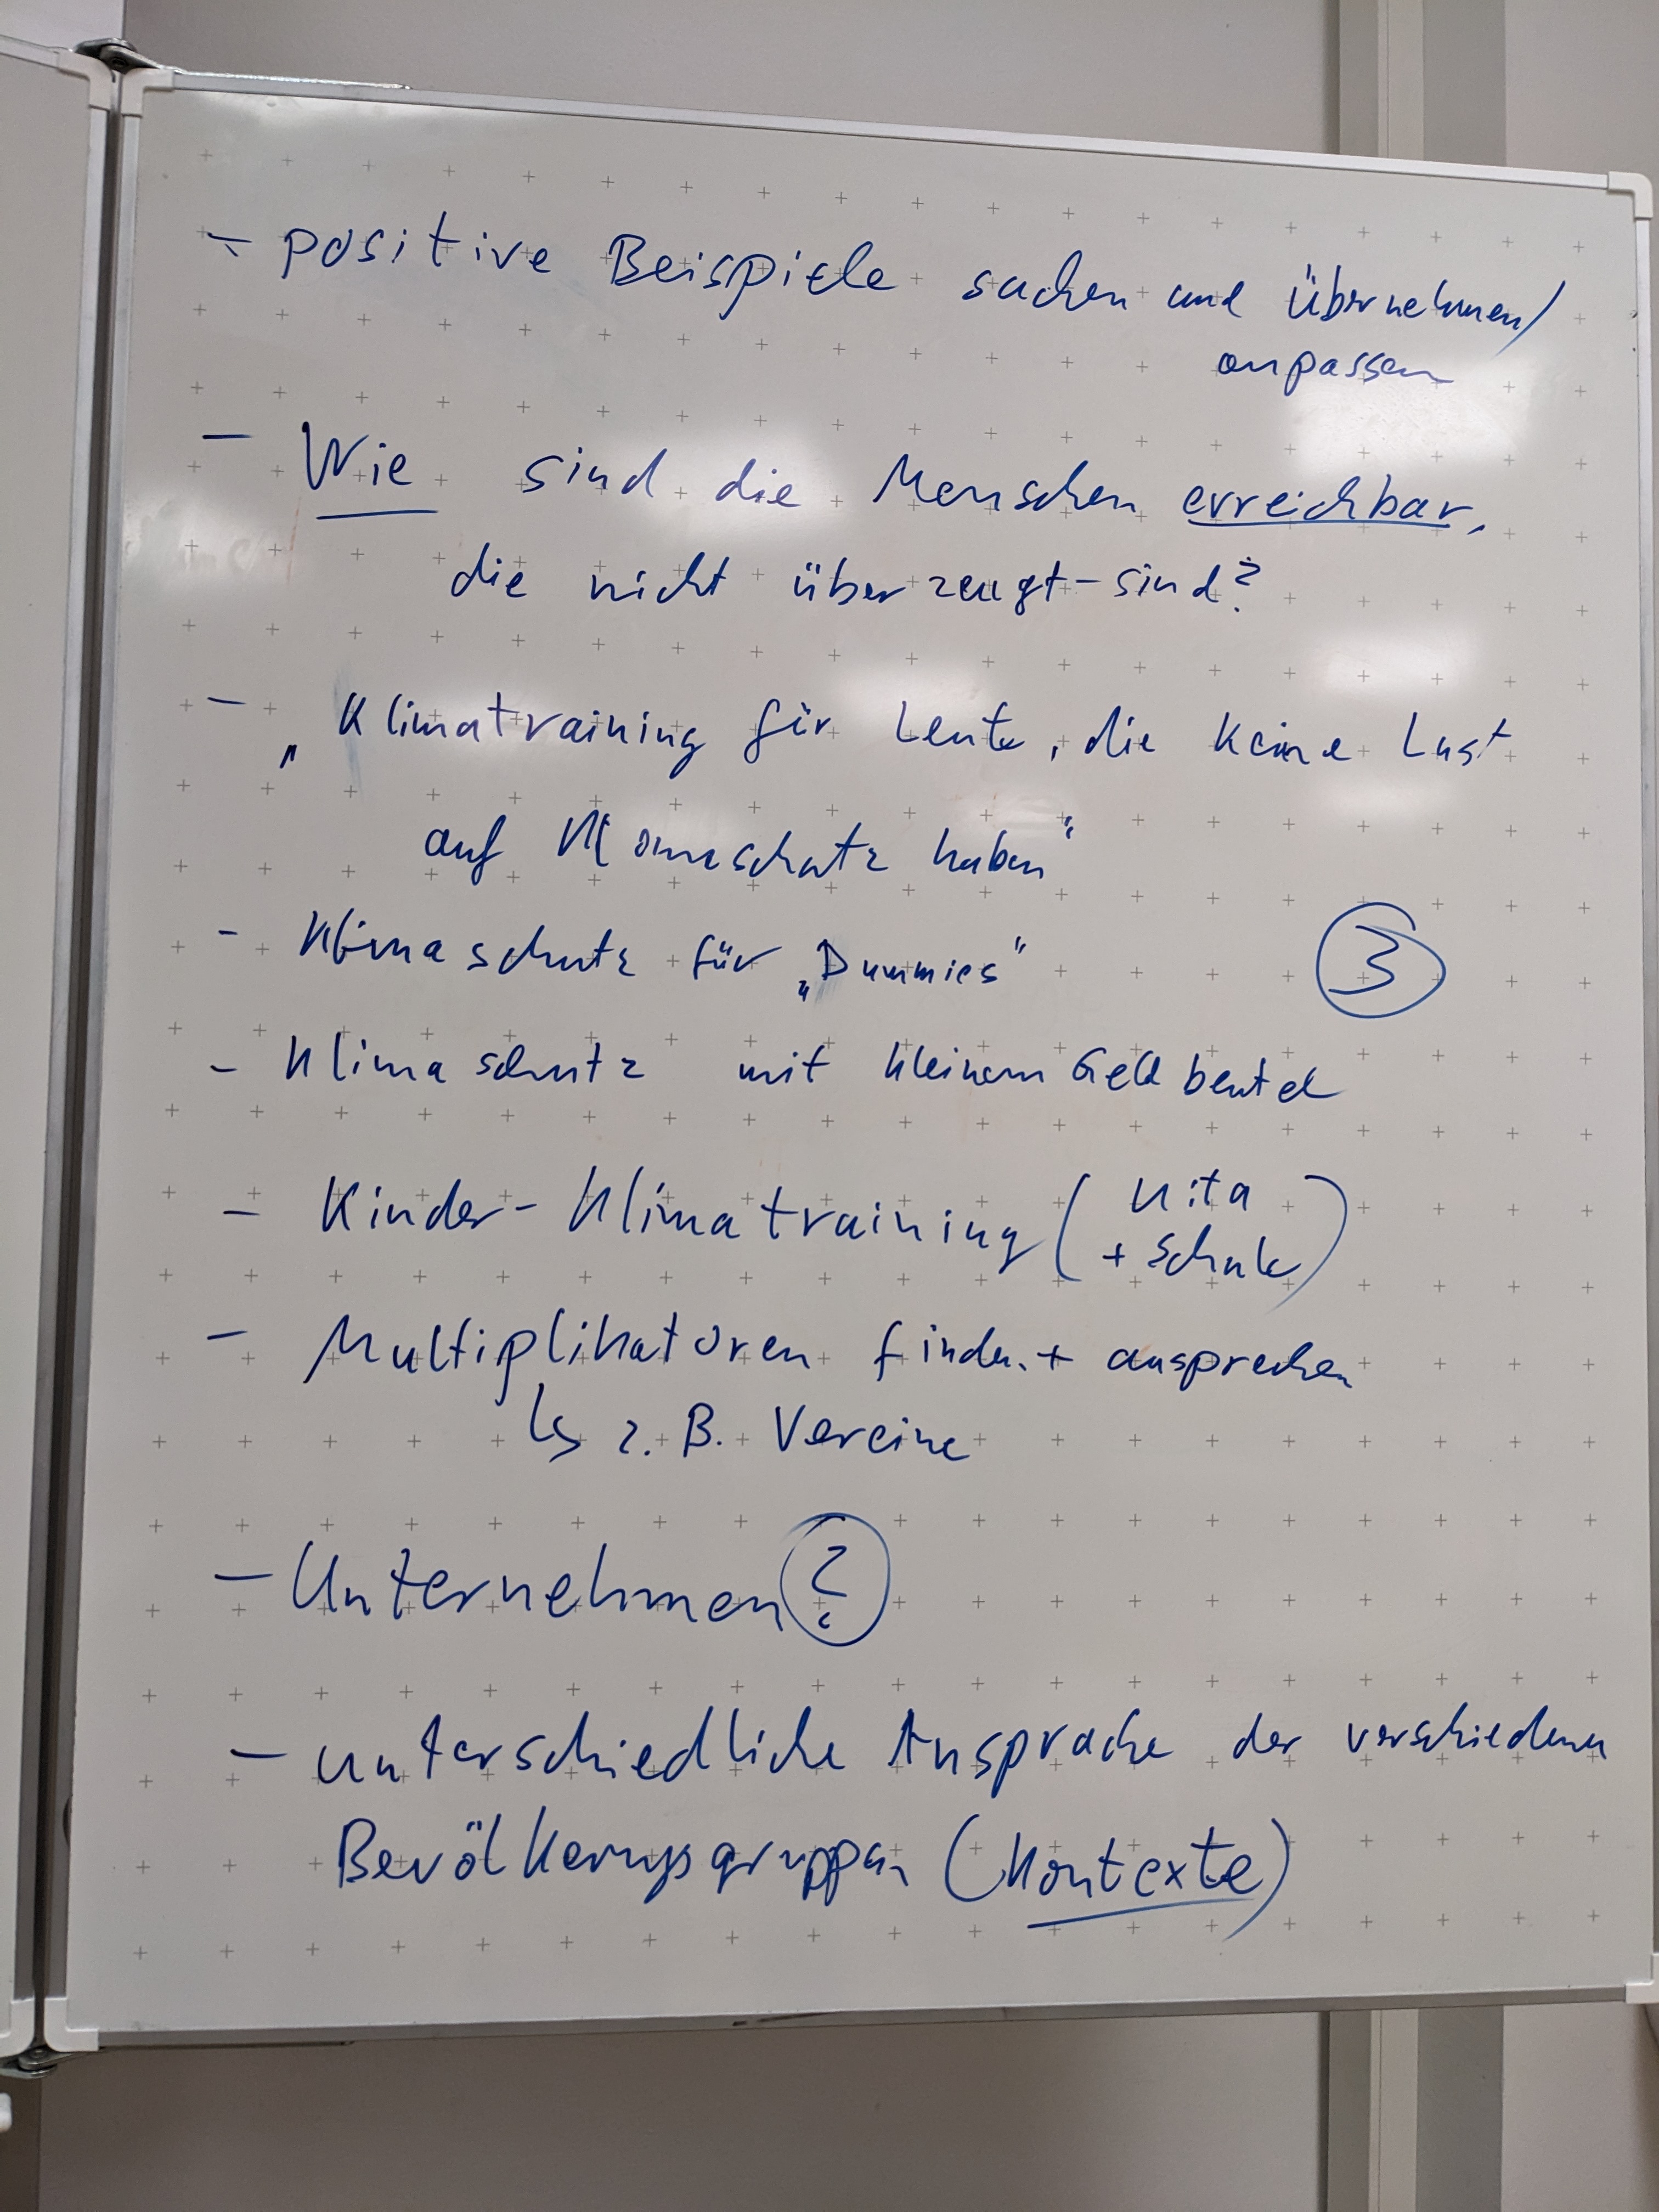 - positive Beispiele suchen und übernehmen/
anpassen
- Wie sind die Menschen erreichbar,
die nicht überzeugt sind?
- „Klimatraining für Leute, die keine Lust
auf Klimaschutz haben“
- Klimaschutz für „Dummies“
3
- Klimaschutz mit kleinem Geldbeutel
- Kinder-Klimatraining (Kita
+ Schule)
- Multiplikatoren finden + ansprechen
↳ z.B. Vereine
- Unternehmen ?
- unterschiedliche Ansprache der verschiedenen
Bevölkerungsgruppen (Kontexte)